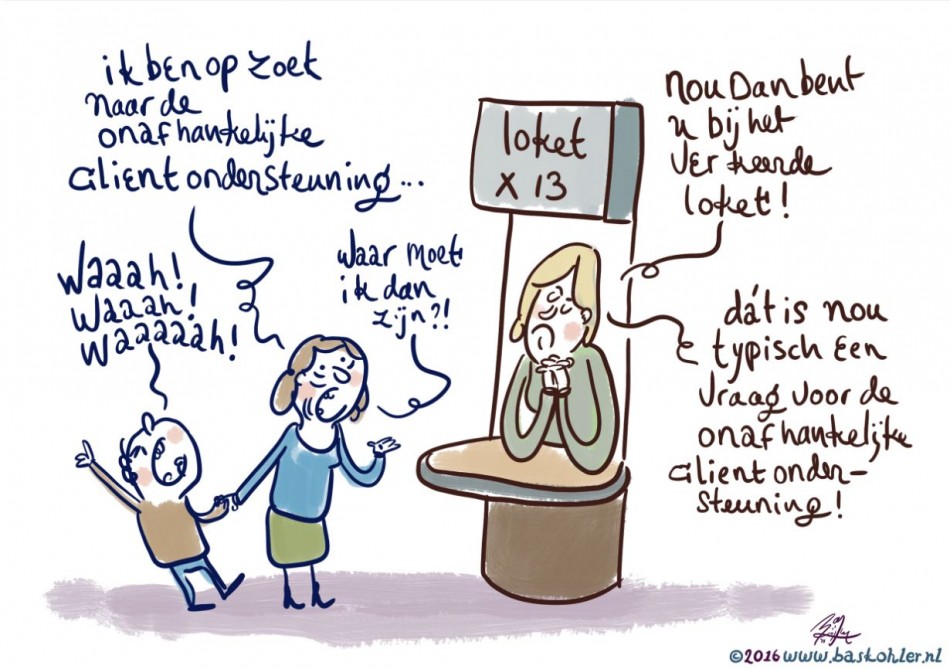 ik ben op zoek
naar de
onafhankelijke
cliëntondersteuning...
nou Dan bent
u bij het
verkeerde
loket!
loket
X 13
Waaah!
Waaah!
Waaaaah!
Waar moet
ik dan
zijn?!
dát is nou
typisch een
vraag voor de
onafhankelijke
cliëntonder-
steuning!
©2016 www.baskohler.nl